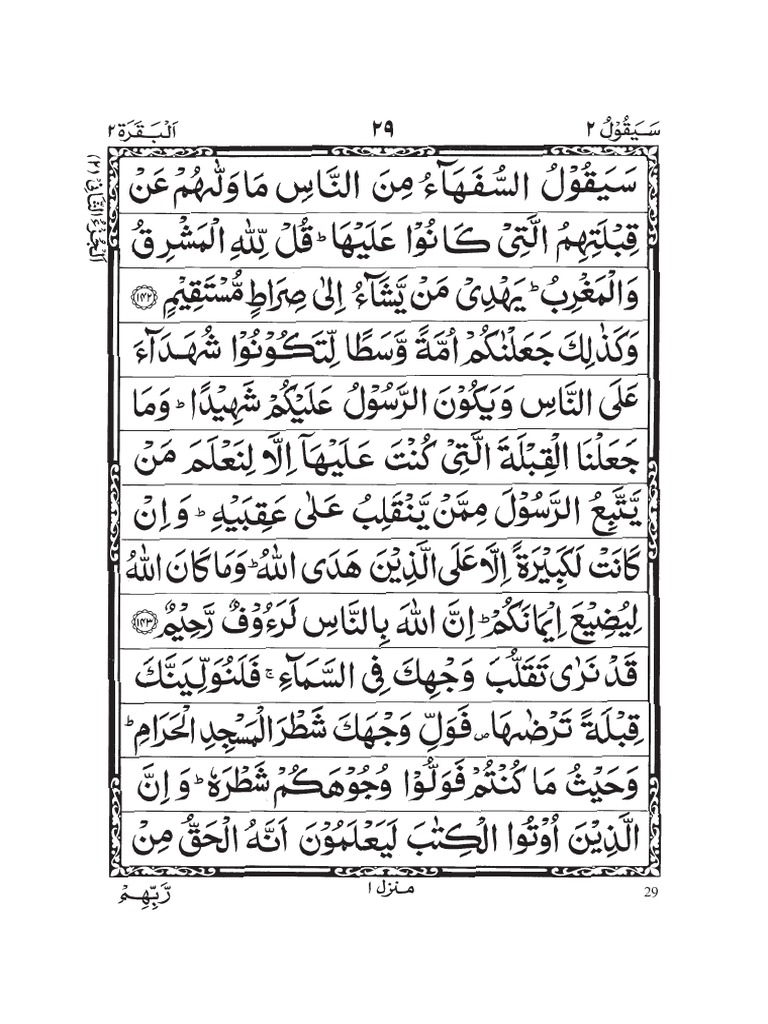 سَيَقُوْلُ ٢
٢٩
اَلْبَقَرَة ٢
اَلْجُزْءُ الثَّانِیْ (٢)
سَيَقُوْلُ السُّفَهَآءُ مِنَ النَّاسِ مَا وَلّٰىهُمْ عَنْ
قِبْلَتِهِمُ الَّتِیْ كَانُوْا عَلَيْهَا ؕ قُلْ لِّلّٰهِ الْمَشْرِقُ
وَالْمَغْرِبُ ؕ يَهْدِیْ مَنْ يَّشَآءُ اِلٰى صِرَاطٍ مُّسْتَقِيْمٍ ﴿۱۴۲﴾
وَكَذٰلِكَ جَعَلْنٰكُمْ اُمَّةً وَّسَطًا لِّتَكُوْنُوْا شُهَدَآءَ
عَلَى النَّاسِ وَيَكُوْنَ الرَّسُوْلُ عَلَيْكُمْ شَهِيْدًا ؕ وَمَا
جَعَلْنَا الْقِبْلَةَ الَّتِیْ كُنْتَ عَلَيْهَآ اِلَّا لِنَعْلَمَ مَنْ
يَّتَّبِعُ الرَّسُوْلَ مِمَّنْ يَّنْقَلِبُ عَلٰى عَقِبَيْهِ ؕ وَاِنْ
كَانَتْ لَكَبِيْرَةً اِلَّا عَلَى الَّذِيْنَ هَدَى اللّٰهُ ؕ وَمَا كَانَ اللّٰهُ
لِيُضِيْعَ اِيْمَانَكُمْ ؕ اِنَّ اللّٰهَ بِالنَّاسِ لَرَءُوْفٌ رَّحِيْمٌ ﴿۱۴۳﴾
قَدْ نَرٰى تَقَلُّبَ وَجْهِكَ فِی السَّمَآءِ ۚ فَلَنُوَلِّيَنَّكَ
قِبْلَةً تَرْضٰىهَا ۪ فَوَلِّ وَجْهَكَ شَطْرَ الْمَسْجِدِ الْحَرَامِ ؕ
وَحَيْثُ مَا كُنْتُمْ فَوَلُّوْا وُجُوْهَكُمْ شَطْرَهٗ ؕ وَاِنَّ
الَّذِيْنَ اُوْتُوا الْكِتٰبَ لَيَعْلَمُوْنَ اَنَّهُ الْحَقُّ مِنْ
29
منزل ١
رَّبِّهِمْ